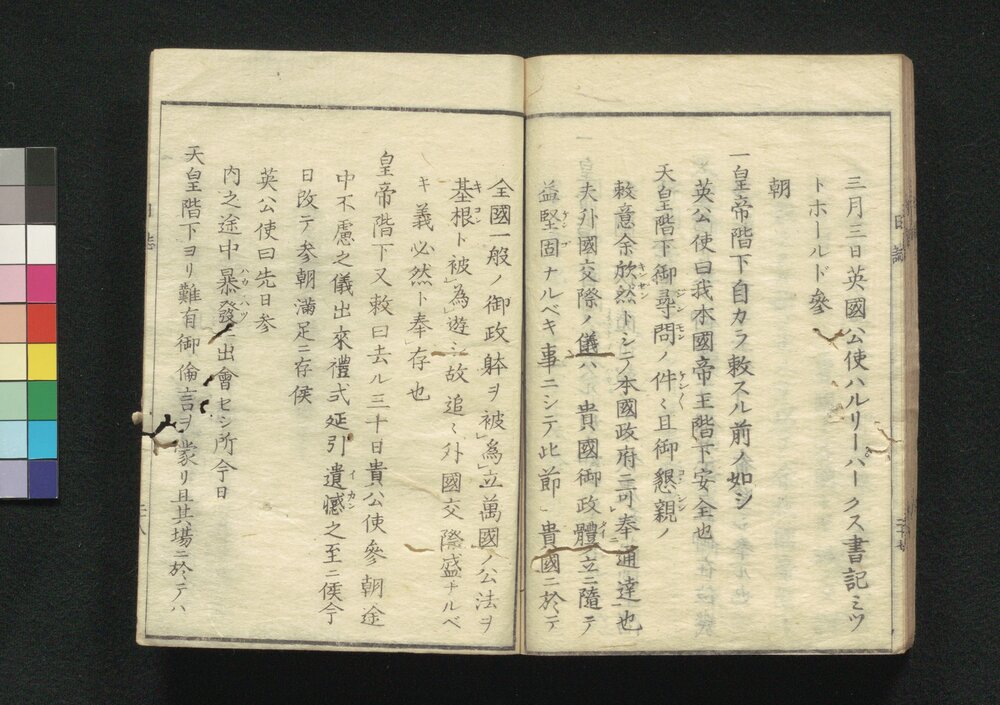 三月三日英國公使ハルリーパークス書記ミツ
トホールド參
朝
一皇帝階下自カラ敕スル前ノ如シ
英公使曰我本國帝王階下安全也
天皇階下御尋問ノ件〻且御懇親ノ
敕意余欣然トシテ本國政府ニ可奉通達也
夫外國交際ノ儀ハ貴國御政體立ニ隨テ
益堅固ナルベキ事ニシテ此節貴國ニ於テ
全國一般ノ御政躰ヲ被為立萬國ノ公法ヲ
基根ト被為遊シ故追〻外國交際盛ナルベ
キ義必然ト奉存也
皇帝階下又敕曰去ル三十日貴公使參朝途
中不慮之儀出來禮式延引遺憾之至ニ候今
日改テ参朝滿足ニ存候
英公使曰先日参
内之途中暴發ニ出會セシ所今日
天皇階下ヨリ難有御倫言ヲ蒙リ且其場ニ於テハ